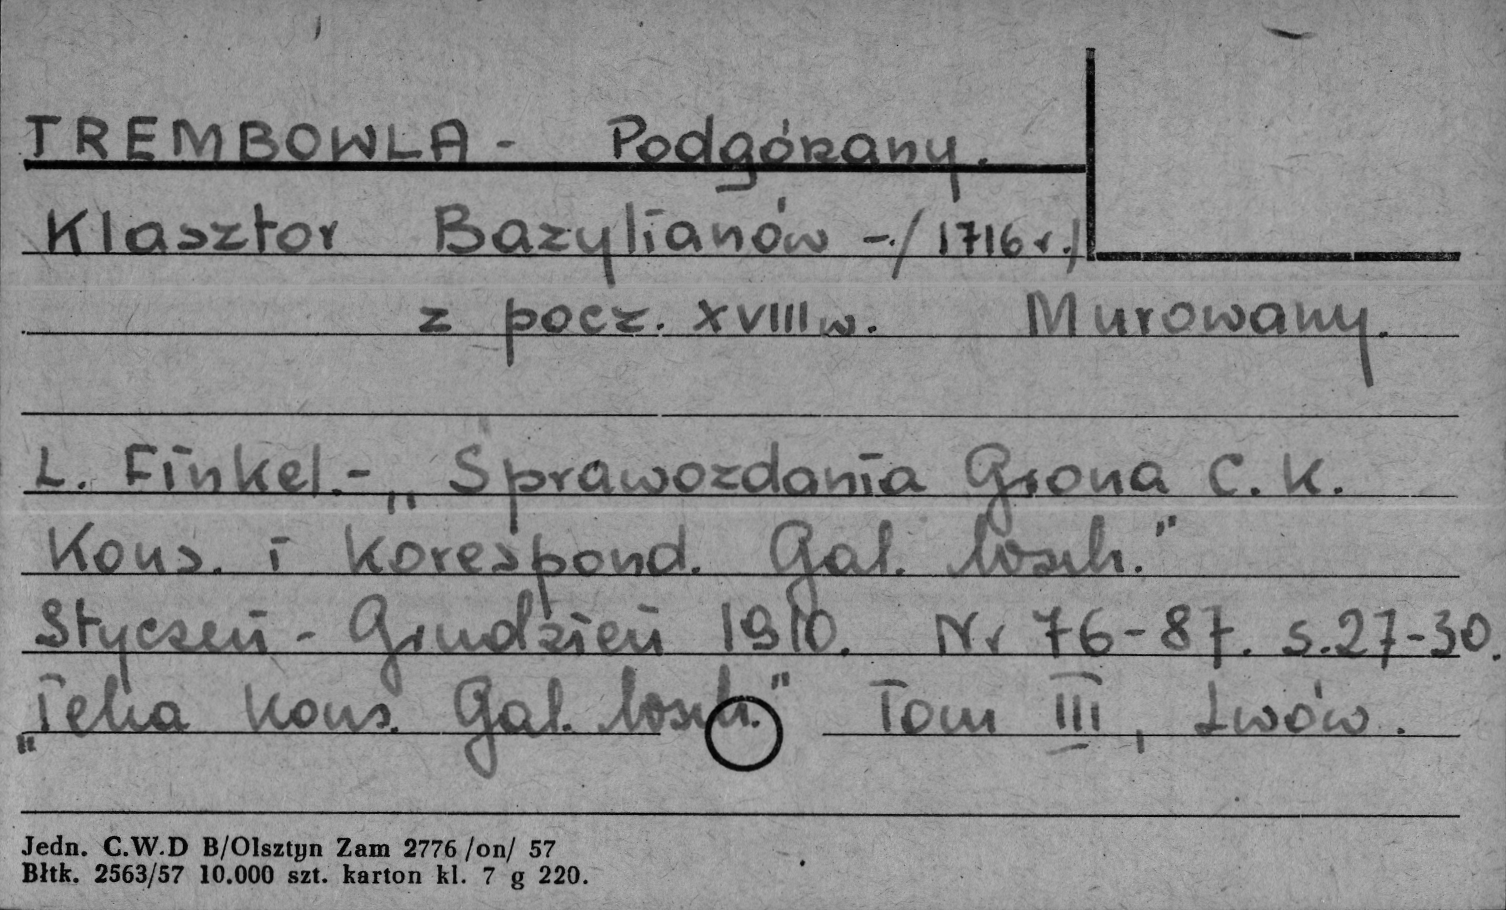 TREMBOWLA - Podgórzany.
Klasztor Bazylianów - / 1716 r./
z pocz. XVIII w. Murowany.
L. Finkel. - „Sprawozdania Grona C. K.
Kons. i Korespond. Gal. wsch."
Styczeń - Grudzień 1910. Nr 76-87. s. 27-30.
„Teka Kons. Gal. wsch." Tom III, Lwów.
Jedn. C.W.D B/Olsztyn Zam 2776 /on/ 57
Błtk. 2563/57 10.000 szt. karton kl. 7 g 220.